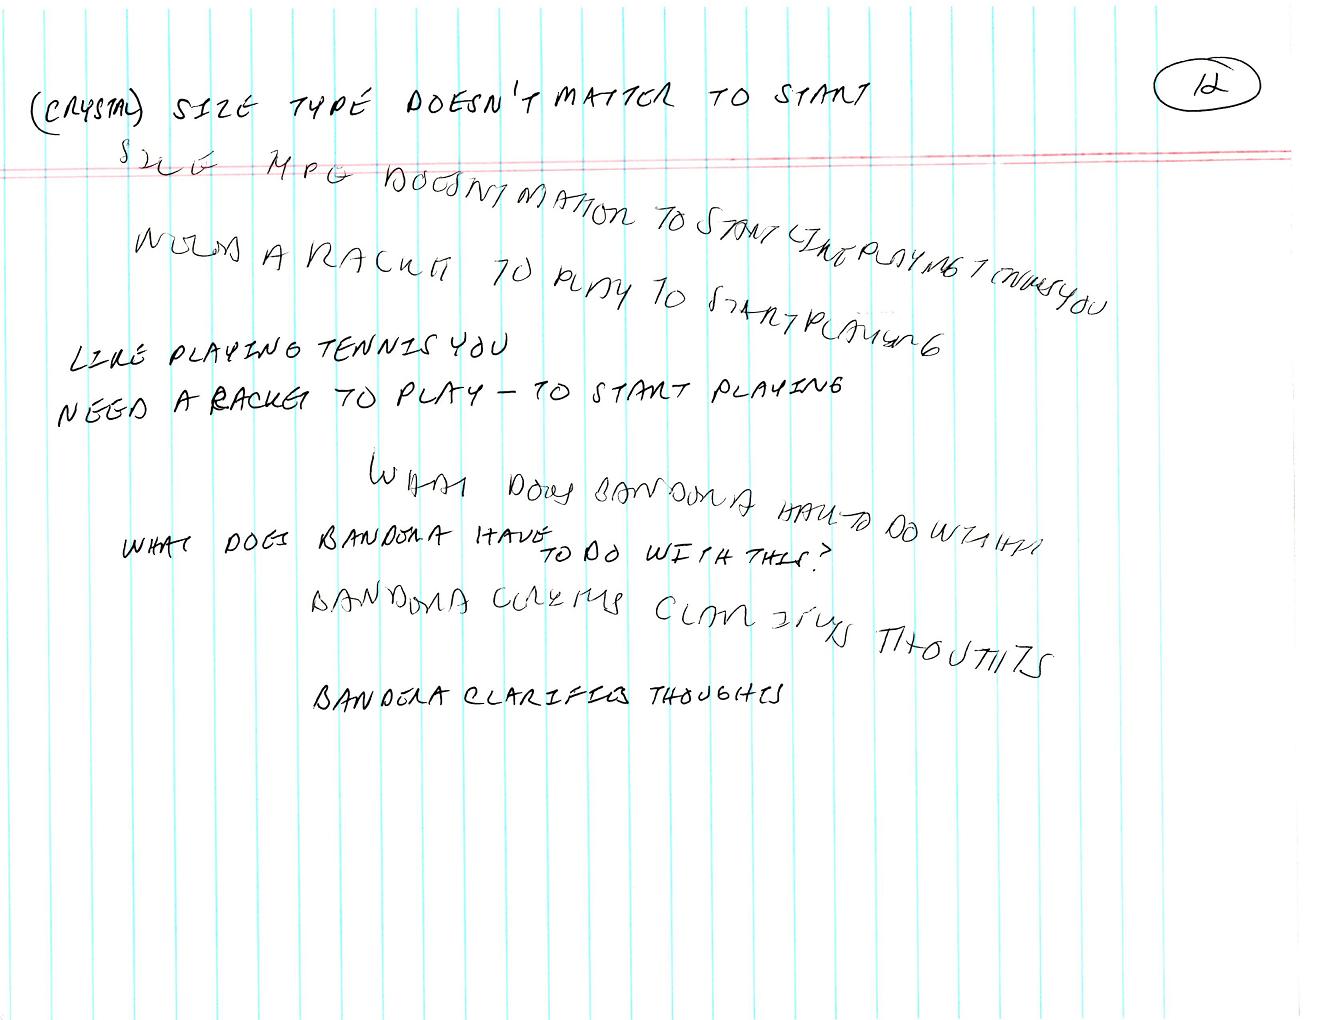 12
(CRYSTAL) SIZE TYPE DOESN'T MATTER TO START
SIZE TYPE DOESNT MATTER TO START LIKE PLAYING TENNIS YOU
NEED A RACKET TO PLAY TO START PLAYING
LIKE PLAYING TENNIS YOU
NEED A RACKET TO PLAY – TO START PLAYING
WHAT DOES BANDORA HAVE TO DO WITH
WHAT DOES BANDORA HAVE
TO DO WITH THIS?
BANDORA THOUGHTS
BANDORA CLARIFIES THOUGHTS